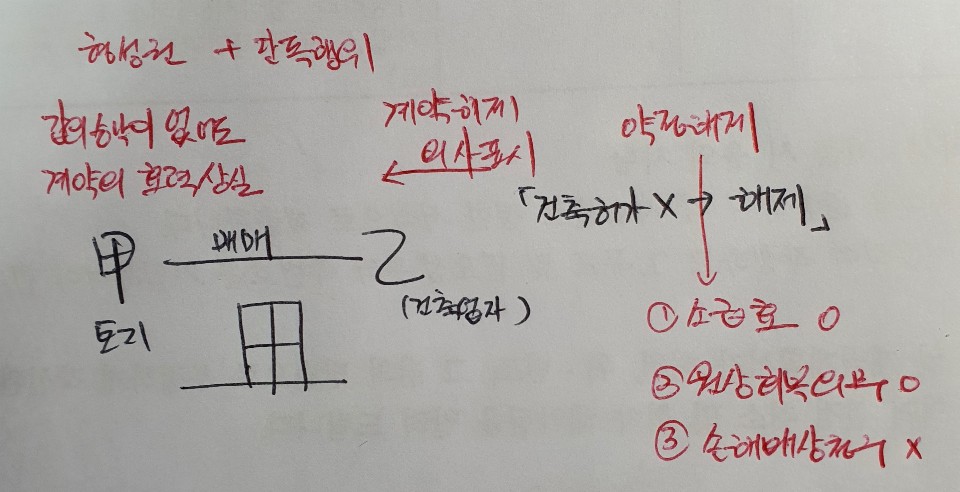 형성권 + 단독행위
갑의 승낙이 없어도
계약의 효력상실
계약해제
의사표시
약정해제
「건축허가 X → 해제」
甲 매매 乙
(건축업자)
토지
① 소급효 O
② 원상회복의무 O
③ 손해배상청구 X